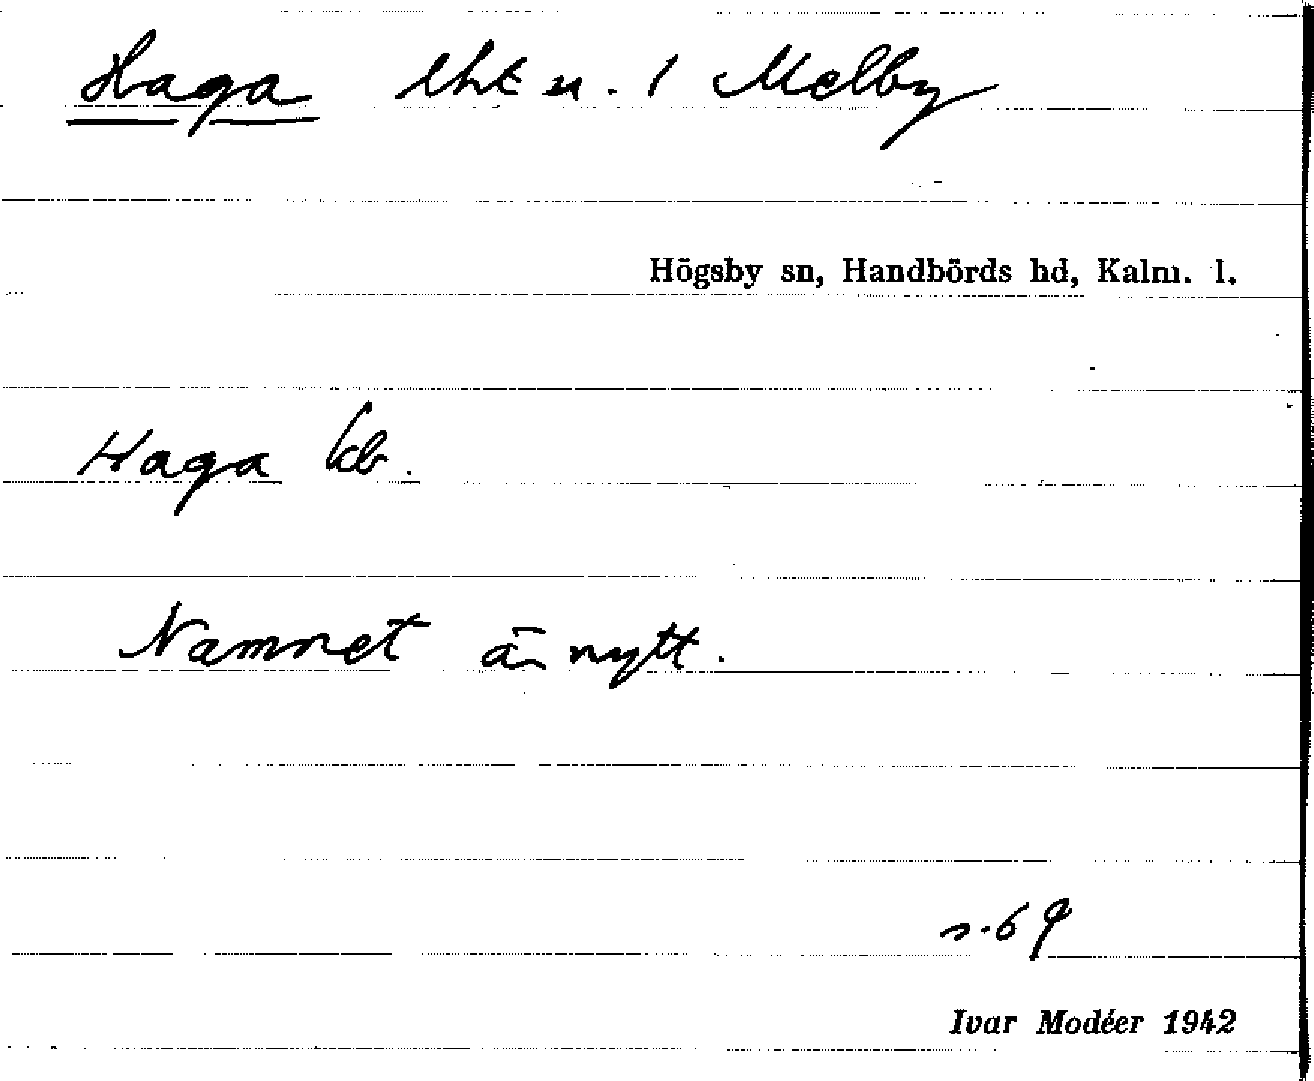 Haga lht u. 1 Melby
Högsby sn, Handbörds hd, Kalm. l.
Haga kb.
Namnet är nytt.
s. 69
Ivar Modéer 1942